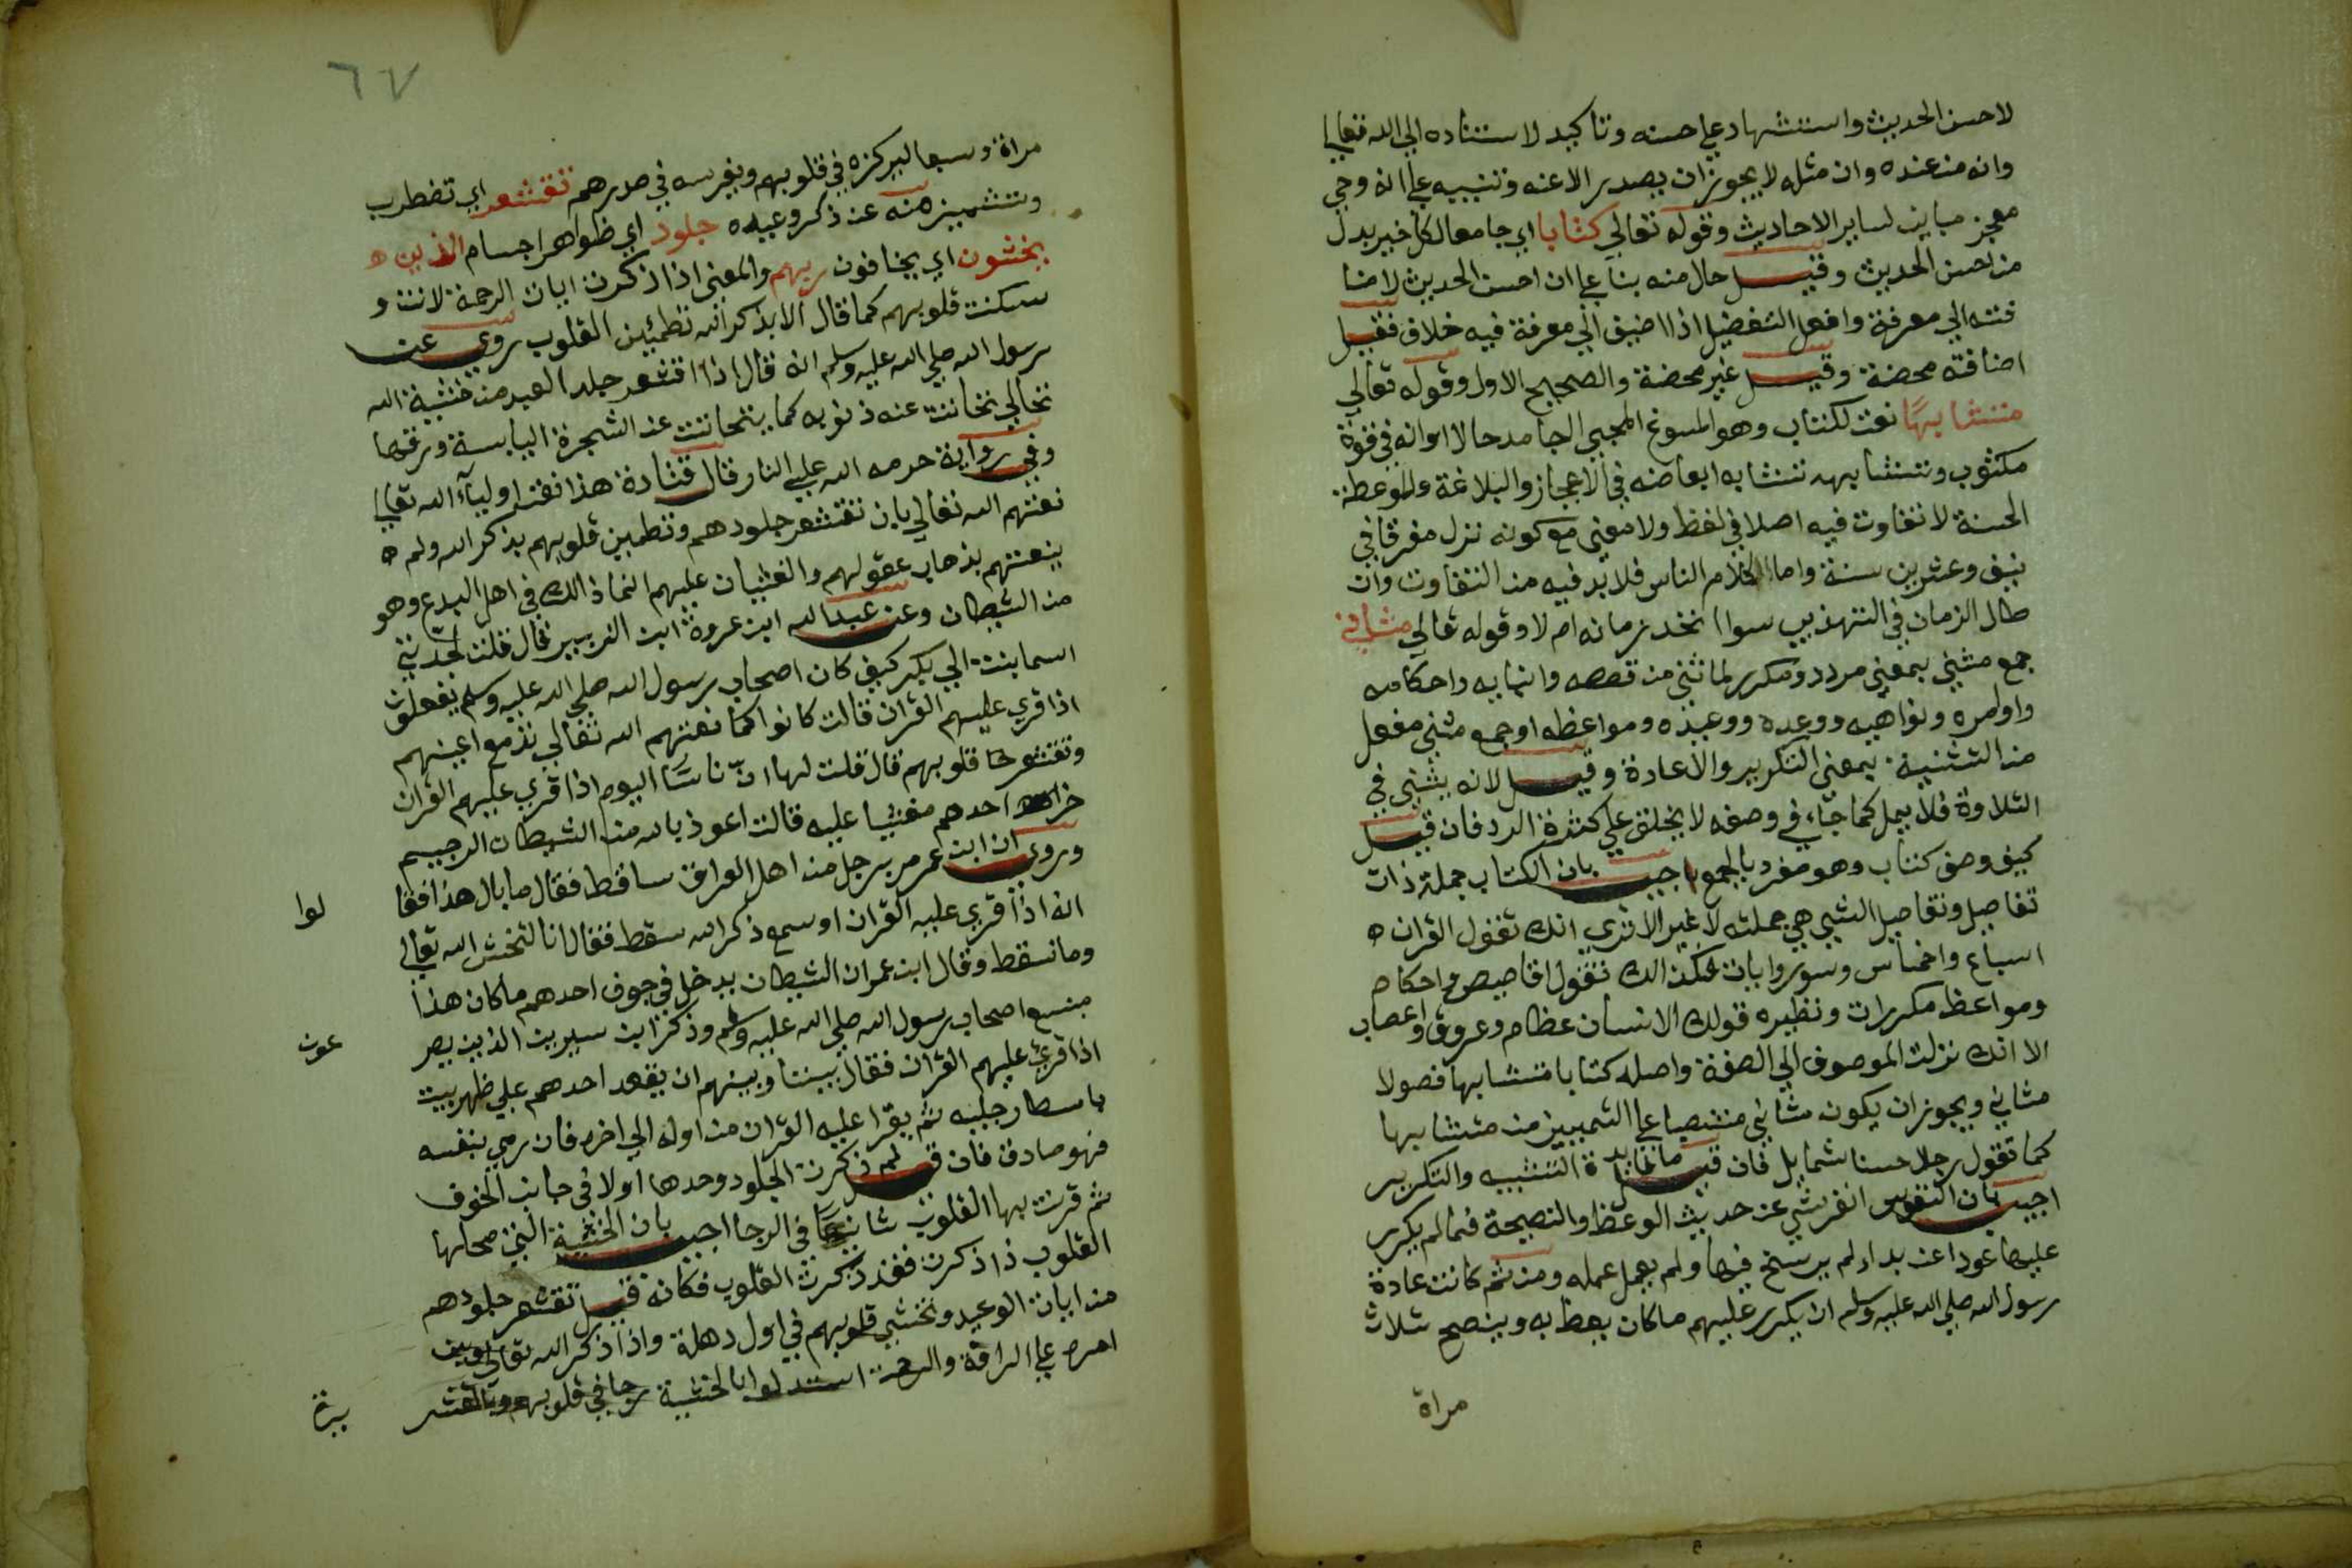 لاحسن الحديث واستشهاد علي حسنه وتاكيد لاستناده الي الله تعالي
وانه من عنده وان مثله لا يجوز ان يصدر الا عنه وتنبيه علي انه وحي
معجز مباين لساير الاحاديث وقوله تعالي كتابا اي جامعا لكل خير بدل
من احسن الحديث وقيل حال منه بنا علي ان احسن الحديث لاضا
فته الي معرفة وافعل التفضيل اذا اضيف الي معرفة فيه خلاف فقيل
اضافته محضة وقيل غير محضة والصحيح الاول وقوله تعالي
متشابها نعت لكتاب وهو المسوغ لمجيي الجامد حالا او انه في قوة
مكتوب وتشابهه تشابه ابعاضه في الاعجاز والبلاغة والموعظة
الحسنة لا تفاوت فيه اصلا في لفظ ولا معني مع كونه نزل مفرقا في
نيف وعشرين سنة واما كلام الناس فلا بد فيه من التفاوت وان
طال الزمان في التهذيب سوا اتحد زمانه ام لا وقوله تعالي مثاني
جمع مثني بمعني مردد ومكرر لما ثني من قصصه وانبايه واحكامه
واوامره ونواهيه ووعده ووعيده ومواعظه او جمع مثني مفعل
من التثنية بمعني التكرير والاعادة وقيل لانه يثني في
التلاوة فلا يمل كما جاء في وصفه لا يخلق علي كثرة الرد فان قيل
كيف وصف كتاب وهو مفرد بالجمع اجيب بان الكتاب جملة ذات
تفاصيل وتفاصيل الشيي هي جملته لا غير الا تري انك تقول القران ه
اسباع واخماس وسور وايات فكذالك تقول اقاصيص واحكام
ومواعظ مكررات ونظيره قولك الانسان عظام وعروق واعصاب
الا انك نزلت الموصوف الي الصفة واصله كتابا متشابها فصولا
مثاني ويجوز ان يكون مثاني منتصبا علي التمييز من متشابها
كما تقول رجلا حسنا شمايل فان قيل ما فايدة التثنيه والتكرير
اجيب بان النفوس انفر شي عن حديث الوعظ والنصيحة فما لم يكرر
عليها عودا عن بداء لم يرسخ فيها ولم يعمل عمله ومن ثم كانت عادة
رسول الله صلي الله عليه وسلم ان يكرر عليهم ما كان يعظ به وينصح ثلاث
مراة
٦٧
مراة وسبعا ليركزه في قلوبهم ويغرسه في صدرهم تقشعر اي تضطرب
وتشميز منه عن ذكر وعيده جلود اي ظواهر اجسام الذين ه
يخشون اي يخافون ربهم والمعني اذا ذكرت ايات الرحمة لانت و
سكنت قلوبهم كما قال الا بذكر الله تطمئين القلوب روي عن
رسول الله صلي الله عليه وسلم انه قال اذا اقشعر جلد العبد من خشية الله
تعالي تحاتت عنه ذنوبه كما يتحاتت عن الشجرة اليابسة ورقها
وفي رواية حرمه الله علي النار قال قتادة هذا نعت اولياء الله تعالي
نعتهم الله تعالي بان تقشعر جلودهم وتطمين قلوبهم بذكر الله ولم ه
ينعتهم بذهاب عقولهم والغشيان عليهم انما ذالك في اهل البدع وهو
من الشيطان وعن عبد الله ابن عروة ابن الزبير قال قلت لجدتي
اسما بنت ابي بكر كيف كان اصحاب رسول الله صلي الله عليه وسلم يفعلون
اذا قري عليهم القران قالت كانوا كما نعتهم الله تعالي تدمع اعينهم
وتقشعر قلوبهم قال قلت لها ان ناسا اليوم اذا قري عليهم القران
خر احدهم مغشيا عليه قالت اعوذ بالله من الشيطان الرجيم
وروي ان ابن عمر مر برجل من اهل العراق ساقط فقال ما بال هذا فقا
لوا
انه اذا قري عليه القران او سمع ذكر الله سقط فقال انا لنخش الله تعالي
وما نسقط وقال ابن عمر ان الشيطان يدخل في جوف احدهم ما كان هذا
منيع اصحاب رسول الله صلي الله عليه وسلم وذكر ابن سيرين الذين يصر
عون
اذا قرئ عليهم القران فقال بيننا وبينهم ان يقعد احدهم علي ظهر بيت
باسطا رجليه ثم يقرا عليه القران من اوله الي اخره فان رمي بنفسه
فهو صادق فان قيل لم ذكرت الجلود وحدها اولا في جانب الخوف
ثم قرنت بها القلوب ثانيا في الرجا اجيب بان الخشية التي محلها
القلوب اذا ذكرت فقد ذكرت القلوب فكانه قيل تقشعر جلودهم
من ايات الوعيد وتخشي قلوبهم في اول دهلة واذا ذكر الله تعالي ومبني
امره علي الرافة والرحمة استبدلوا بالخشية رجا في قلوبهم وبالقشعر
يرة